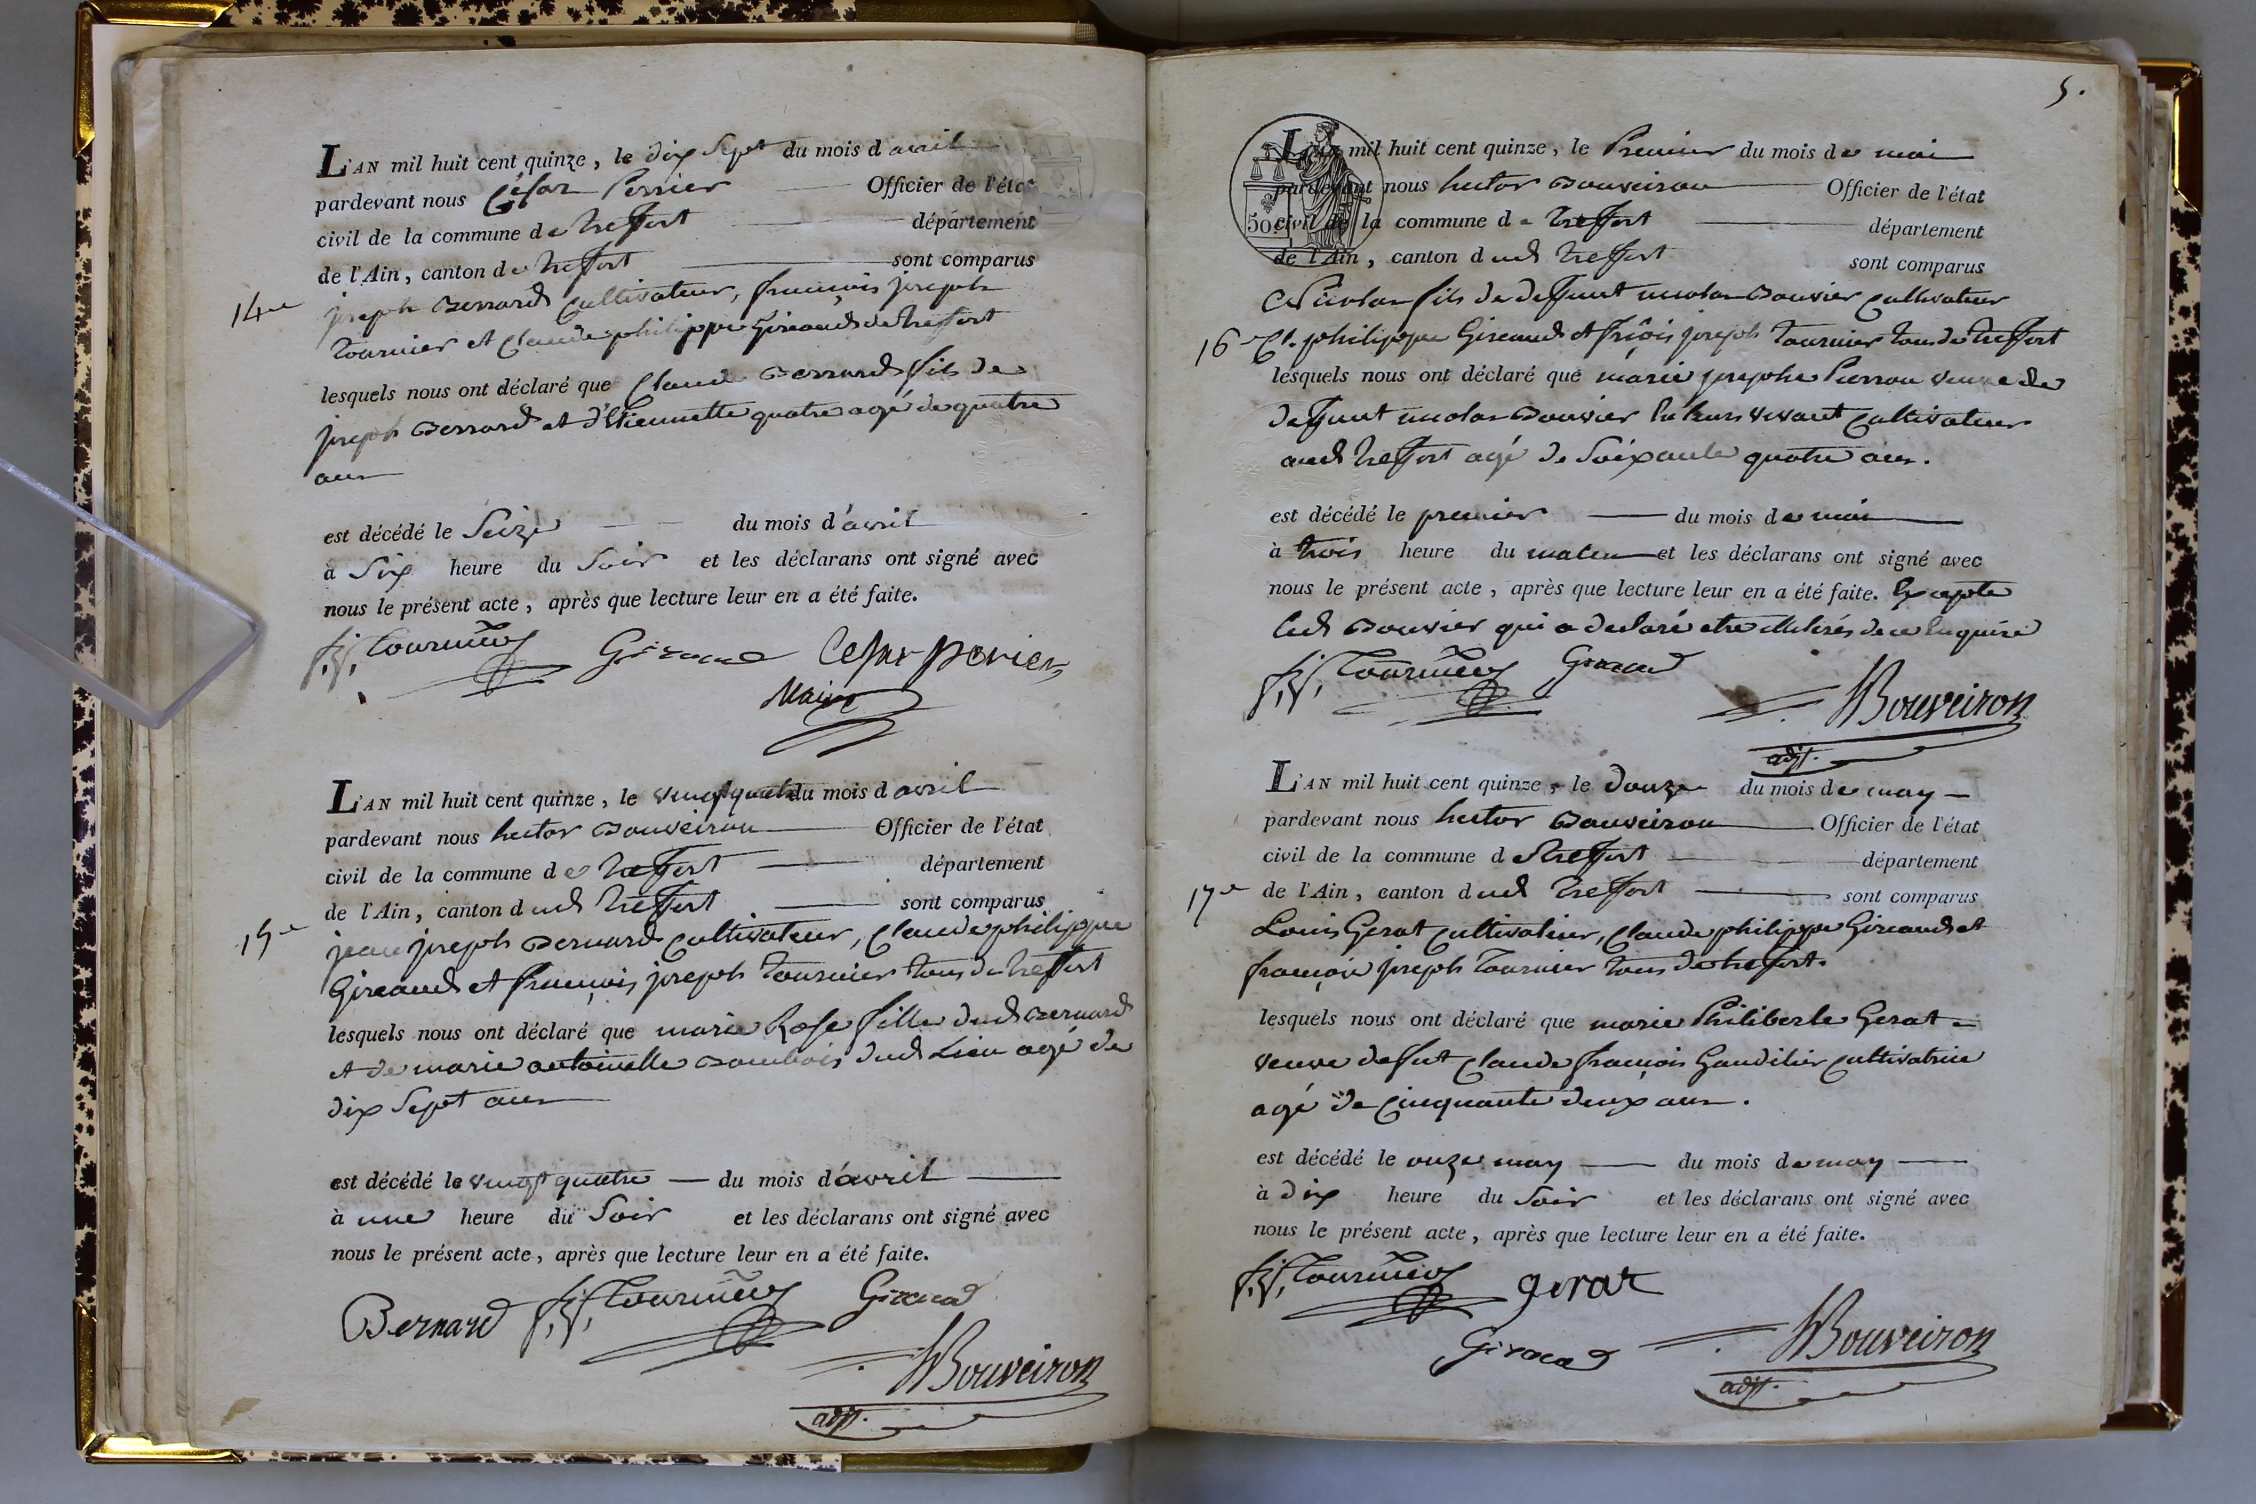 L'AN mil huit cent quinze, le dix Sept du mois d avril
pardevant nous César Perrier Officier de l'état
civil de la commune de treffort département
de l'Ain, canton de treffort sont comparus
14e
joseph Berrard Cultivateur, françois joseph
tournier et Claude philippe Gireaud de treffort
lesquels nous ont déclaré que Claude Berrard fils de
joseph Berrard et d'Etiennette quatre agé de quatre
ans
est décédé le Seize du mois d'avril
à Six heure du Soir et les déclarans ont signé avec
nous le présent acte, après que lecture leur en a été faite.
f. j. tournier Giraud Cesar perier
Maire
L'AN mil huit cent quinze, le vingt quatre du mois d avril
pardevant nous hector Bouveiron Officier de l'état
civil de la commune de treffort département
de l'Ain, canton dud treffort sont comparus
15e
jean joseph Bernard Cultivateur, Claude philippe
Gireaud et françois joseph tournier tous de treffort
lesquels nous ont déclaré que marie Rose fille dud Bernard
et de marie antoinette dud Lieu agé de
dix Sept ans
est décédé le vingt quatre du mois d'avril
à une heure du Soir et les déclarans ont signé avec
nous le présent acte, après que lecture leur en a été faite.
Bernard f. j. tournier Giraud
HBouveiron
adjt.
5.
L'AN mil huit cent quinze, le Premier du mois de mai
pardevant nous hector Bouveiron Officier de l'état
50 civil de la commune de treffort département
de l'Ain, canton dud treffort sont comparus
Nicolas fils de deffunt nicolas Bouvier Cultivateur
16e Cl. philippe Gireaud et frçois joseph tournier tous de treffort
lesquels nous ont déclaré que marie josephe Pierron veuve de
deffunt nicolas Bouvier En Son vivant Cultivateur
aud treffort agé de Soixante quatre ans.
est décédé le premier du mois de mai
à trois heure du matin et les déclarans ont signé avec
nous le présent acte, après que lecture leur en a été faite. Excepté
led Bouvier qui a declaré etre illitéré de ce Enquire
f. j. tournier Giraud
HBouveiron
adjt.
L'AN mil huit cent quinze, le douze du mois de may
pardevant nous hector Bouveiron Officier de l'état
civil de la commune de treffort département
17e de l'Ain, canton dud treffort sont comparus
Louis Gerat Cultivateur, Claude philippe Gireaud et
françois joseph tournier tous de treffort.
lesquels nous ont déclaré que marie Philiberte Gerat
veuve de fut Claude françois Gaudilier Cultivatrice
agé de Cinquante deux ans.
est décédé le onze may du mois de may
à dix heure du Soir et les déclarans ont signé avec
nous le présent acte, après que lecture leur en a été faite.
f. j. tournier gerat
Giraud HBouveiron
adjt.